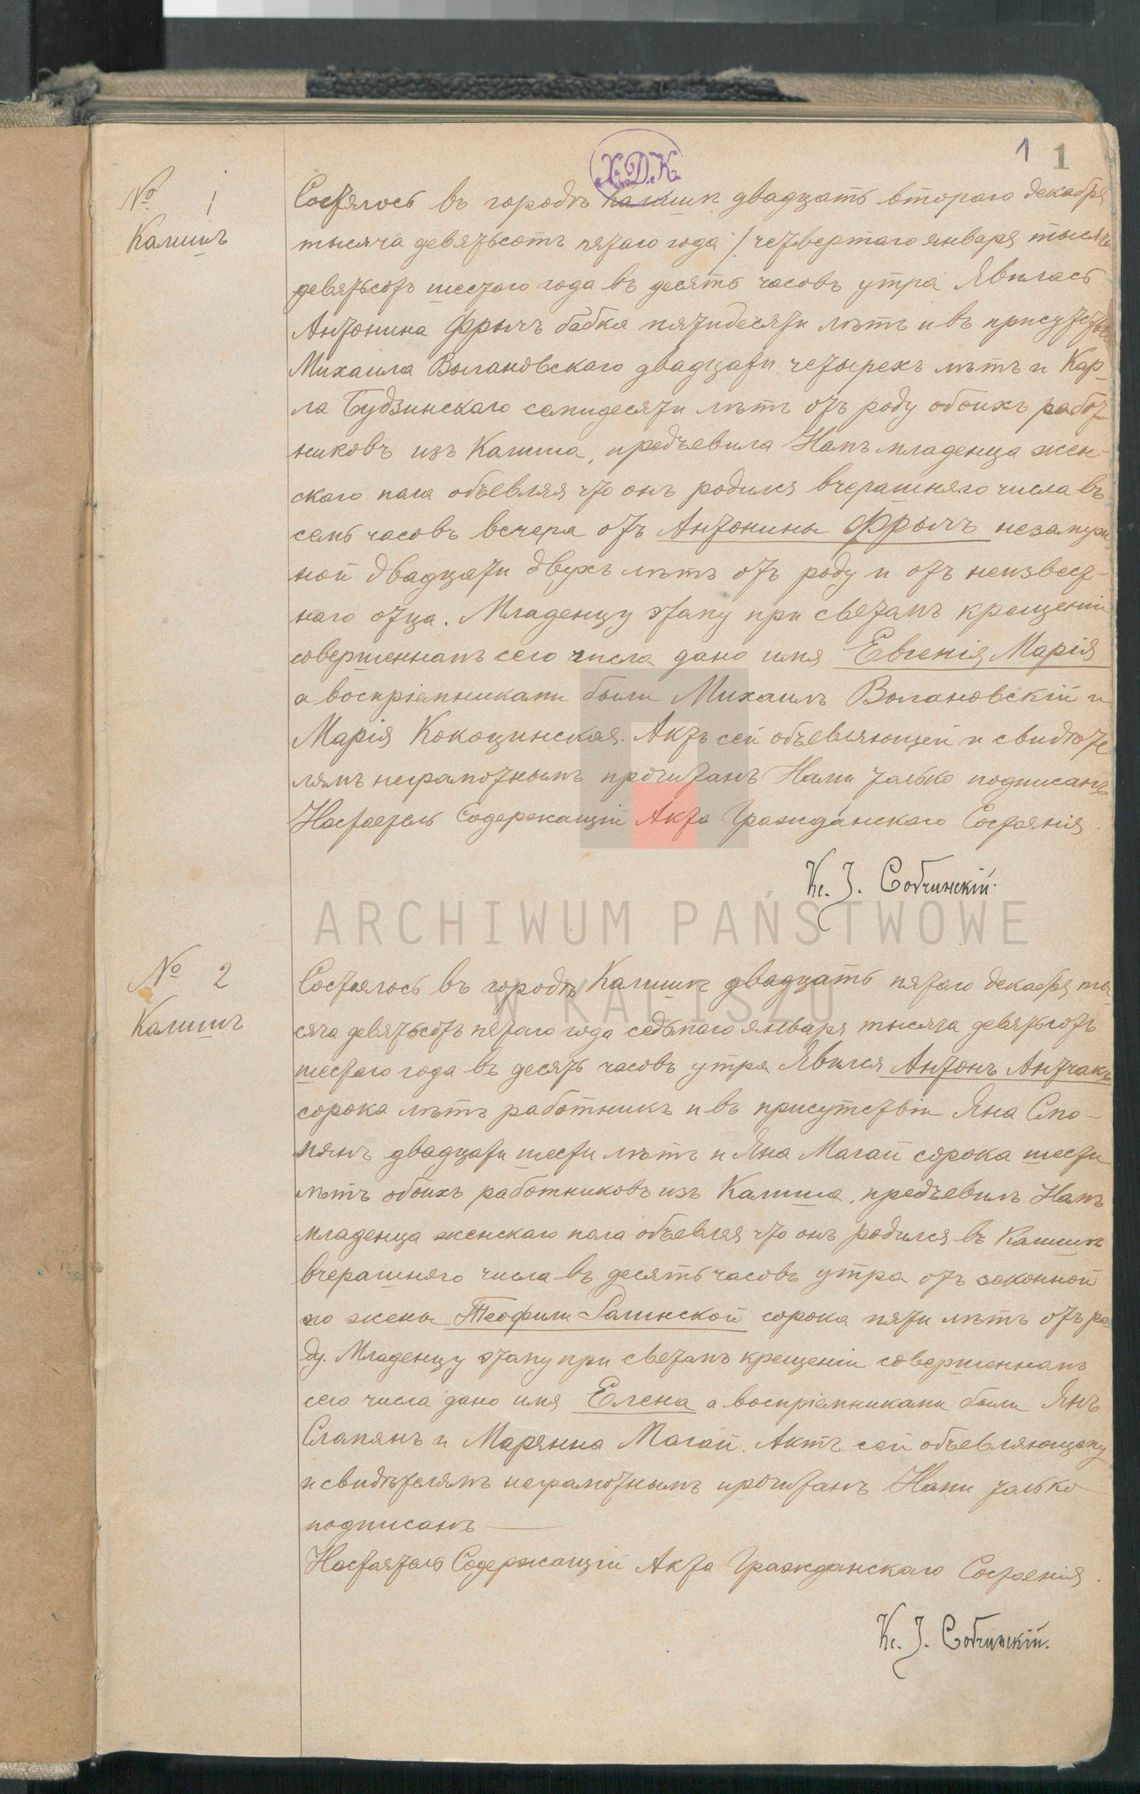 1 1
Х.Д.К.
№ 1
Калишъ
Состоялось въ городѣ Калишѣ двадцать втораго декабря
тысяча девятьсотъ пятаго года / четвертаго января тысяча
девятьсотъ шестаго года въ десять часовъ утра Явилась
Антонина Фрычъ бабка пятидесяти лѣтъ и въ присутствіи
Михаила Волановскаго двадцати четырехъ лѣтъ и Кар-
ла Будзинскаго семидесяти лѣтъ отъ роду обоихъ работ-
никовъ изъ Калиша, предъевила Намъ младенца жен-
скаго пола объевляя что онъ родился вчерашняго числа въ
семь часовъ вечера отъ Антонины Фрычъ незамуж-
ной двадцати двухъ лѣтъ отъ роду и отъ неизвест-
наго отца. Младенцу этому при светомъ крещеніи
совершенномъ сего числа дано имя Евгенія Марія
а воспріемниками были Михаилъ Волановскій и
Марія Кокоцинская. Актъ сей объевляющей и свидѣте
лямъ неграмотнымъ прочитанъ Нами только подписанъ
Настоятель Содержащій Акта Гражданскаго Состоянія.
Кс. J. Собчинскій.
ARCHIWUM PAŃSTWOWE
W KALISZU
№ 2
Калишъ
Состоялось въ городѣ Калишѣ двадцать пятаго декабря ты-
сяча девятьсотъ пятаго года седьмаго января тысяча девятьсотъ
шестаго года въ десять часовъ утра Явился Антонъ Антчакъ
сорока лѣтъ работникъ и въ присутствіи Яна Сло-
мянъ двадцати шести лѣтъ и Яна Магай сорока шести
лѣтъ обоихъ работниковъ изъ Калиша, предъевилъ Намъ
младенца женскаго пола объевляя что онъ родился въ Калишѣ
вчерашняго числа въ десять часовъ утра отъ законной
его жены Теофили сорока пяти лѣтъ отъ ро
ду. Младенцу этому при светомъ крещеніи совершенномъ
сего числа дано имя Елена а воспріемниками были Янъ
Сламянъ и Марянна Магай. Актъ сей объевляющему
и свидѣтелямъ неграмотнымъ прочитанъ Нами только
подписанъ
Настоятель Содержащій Акта Гражданскаго Состоянія.
Кс. J. Собчинскій.